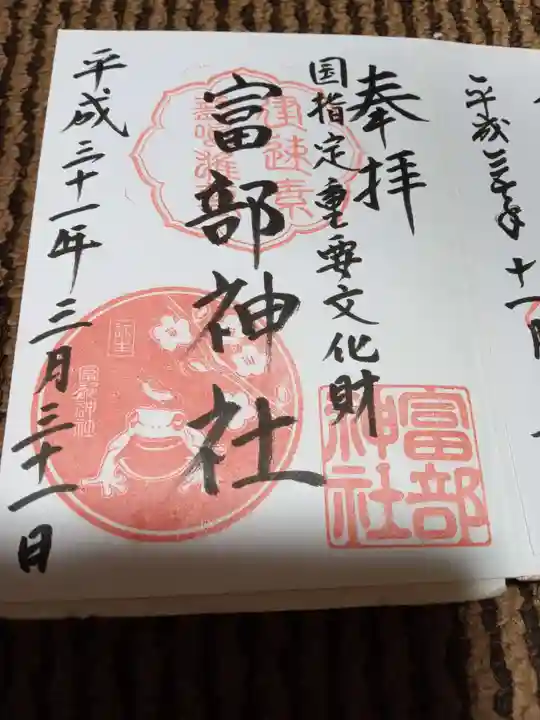 平成三十年十一
奉拝
国指定重要文化財
富部神社
平成三十一年三月三十一日
建速素
富部神社
富部神社